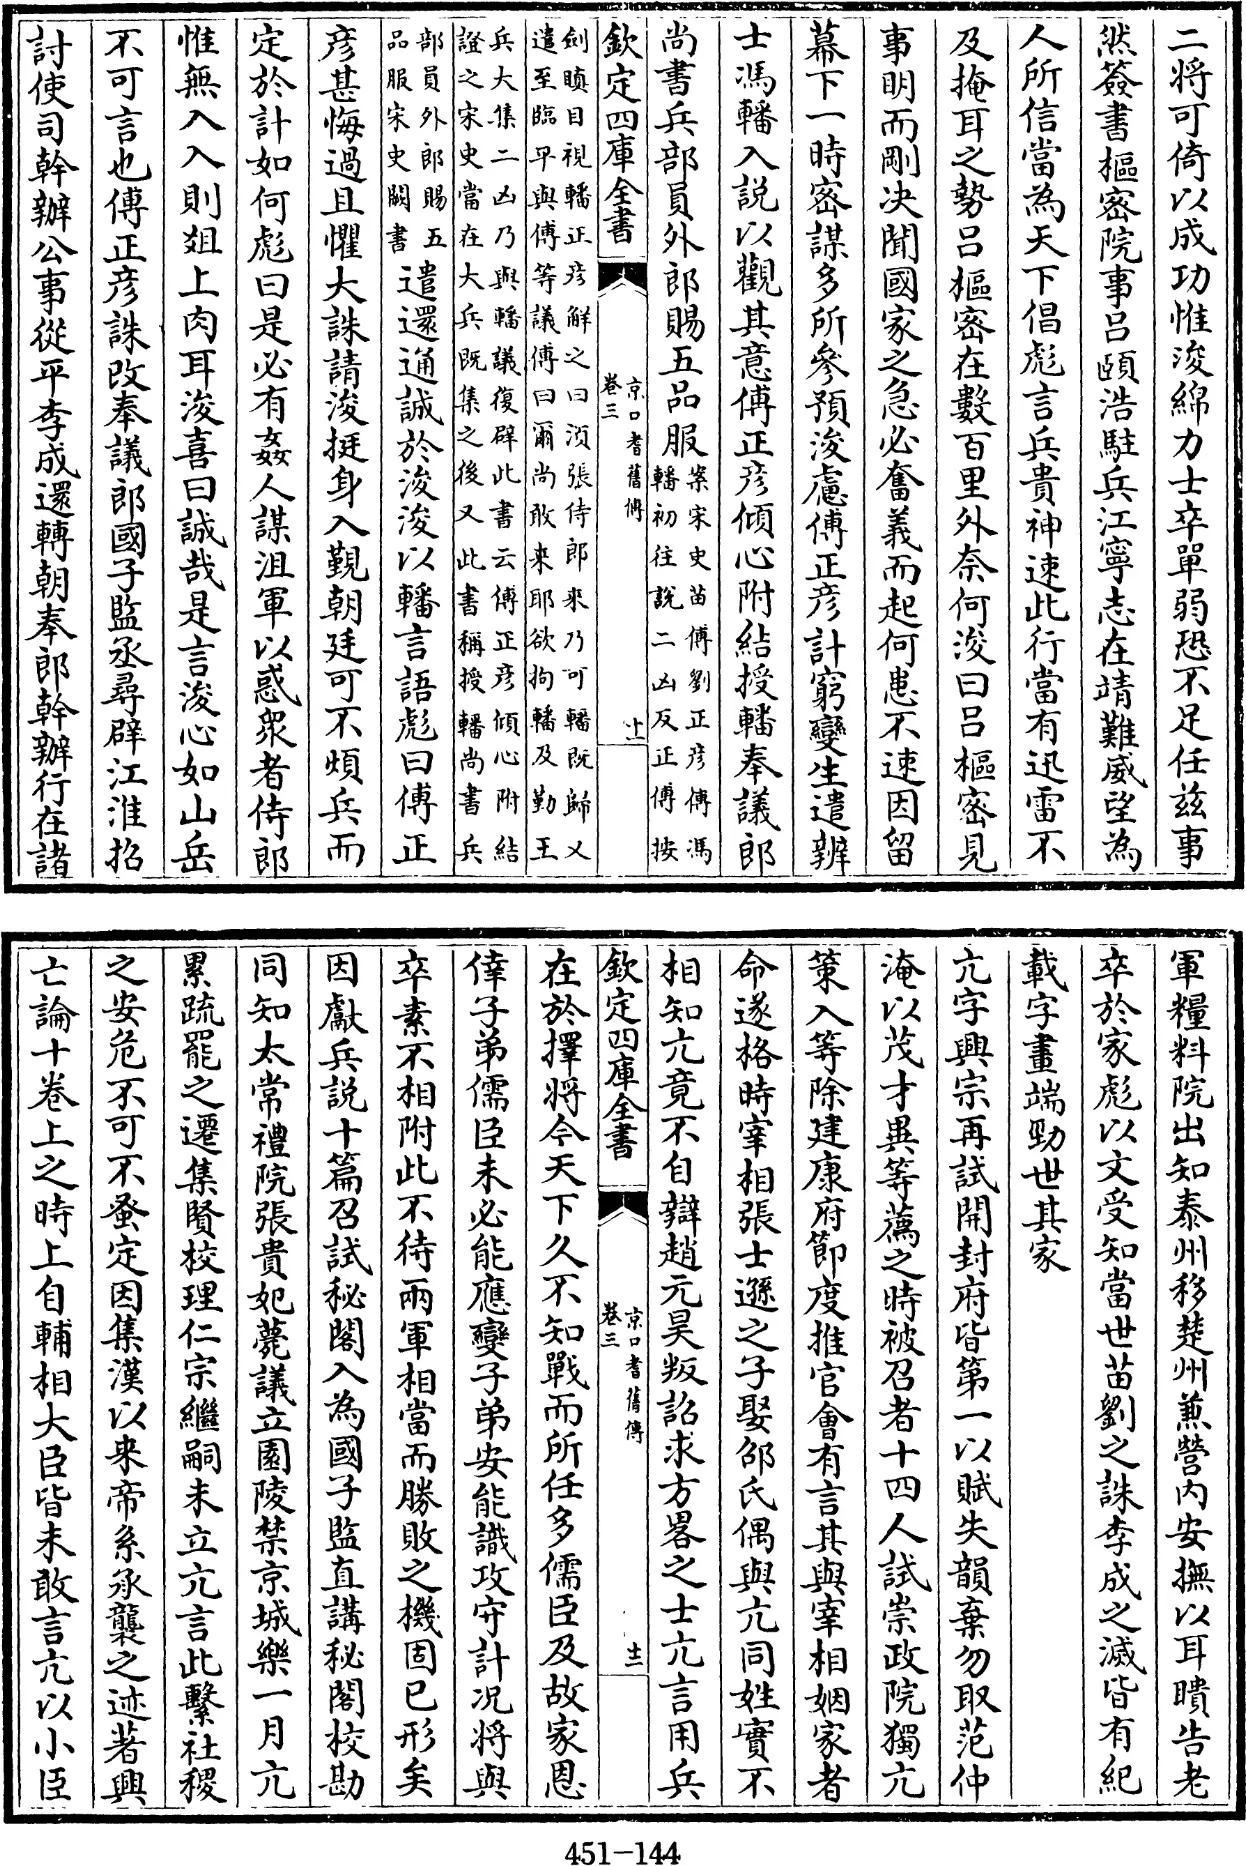 二將可倚以成功惟浚綿力士卒單弱恐不足任兹事
然簽書樞密院事吕頤浩駐兵江寧志在靖難威望為
人所信當為天下倡彪言兵貴神速此行當有迅雷不
及掩耳之勢吕樞密在數百里外奈何浚曰吕樞密見
事明而剛决聞國家之急必奮義而起何患不速因留
幕下一時密謀多所參預浚慮傅正彦計窮變生遣辨
士馮轓入說以觀其意傅正彦傾心附結授轓奉議郎
尚書兵部員外郎賜五品服
案宋史苗傅劉正彦傳馮
轓初往說二凶反正傅按
欽定四庫全書
京口耆舊傳
卷三
十一
劍瞋目視轓正彦解之曰湏張侍郎來乃可轓既歸又
遣至臨平與傅等議傅曰爾尚敢來耶欲拘轓及勤王
兵大集二凶乃與轓議復辟此書云傅正彦傾心附結
證之宋史當在大兵既集之後又此書稱授轓尚書兵
部員外郎賜五
品服宋史闕書
遣還通誠於浚浚以轓言語彪曰傅正
彦甚悔過且懼大誅請浚挺身入覲朝廷可不煩兵而
定於計如何彪曰是必有姦人謀沮軍以惑衆者侍郎
惟無入入則俎上肉耳浚喜曰誠哉是言浚心如山岳
不可言也傅正彦誅改奉議郎國子監丞尋辟江淮招
討使司幹辦公事從平李成還轉朝奉郎幹辦行在諸
軍糧料院出知泰州移楚州兼營内安撫以耳聵告老
卒於家彪以文受知當世苗劉之誅李成之滅皆有紀
載字畫端勁世其家
亢字興宗再試開封府皆第一以賦失韻棄勿取范仲
淹以茂才異等薦之時被召者十四人試崇政院獨亢
策入等除建康府節度推官會有言其與宰相姻家者
命遂格時宰相張士遜之子娶邵氏偶與亢同姓實不
相知亢竟不自辯趙元昊叛詔求方畧之士亢言用兵
欽定四庫全書
京口耆舊傳
卷三
十二
在於擇將今天下久不知戰而所任多儒臣及故家恩
倖子弟儒臣未必能應變子弟安能識攻守計况將與
卒素不相附此不待兩軍相當而勝敗之機固已形矣
因獻兵説十篇召試秘閣入為國子監直講秘閣校勘
同知太常禮院張貴妃薨議立園陵禁京城樂一月亢
累疏罷之遷集賢校理仁宗繼嗣未立亢言此繫社稷
之安危不可不蚤定因集漢以來帝系承襲之迹著興
亡論十卷上之時上自輔相大臣皆未敢言亢以小臣
451-144